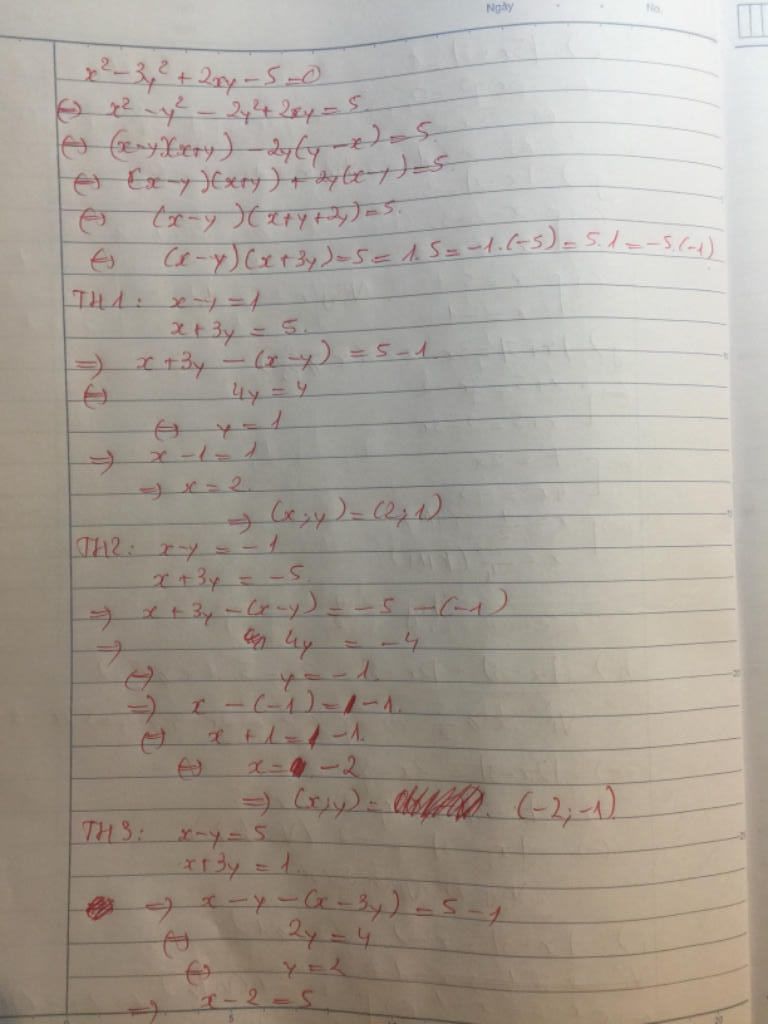 Ngày
No.
x² - 3y² + 2xy - 5 = 0
⇔ x² - y² - 2y² + 2xy = 5
⇔ (x-y)(x+y) - 2y(y-x) = 5
⇔ (x-y)(x+y) + 2y(x-y) = 5
⇔ (x-y)(x+y+2y) = 5.
⇔ (x-y)(x+3y) = 5 = 1.5 = -1.(-5) = 5.1 = -5.(-1)
TH1: x-y = 1
x+3y = 5.
⇒ x+3y - (x-y) = 5-1
⇔ 4y = 4
⇔ y = 1
⇒ x-1 = 1
⇒ x = 2
⇒ (x;y) = (2;1)
TH2: x-y = -1
x+3y = -5
⇒ x+3y - (x-y) = -5 - (-1)
⇒ 4y = -4
⇔ y = -1.
⇒ x - (-1) = -1.
⇔ x+1 = -1.
⇔ x = -2
⇒ (x;y) = (-2;-1)
TH3: x-y = 5
x+3y = 1
⇒ x-y-(x-3y) = 5-1
⇔ 2y = 4
⇔ y = 2
⇒ x-2 = 5